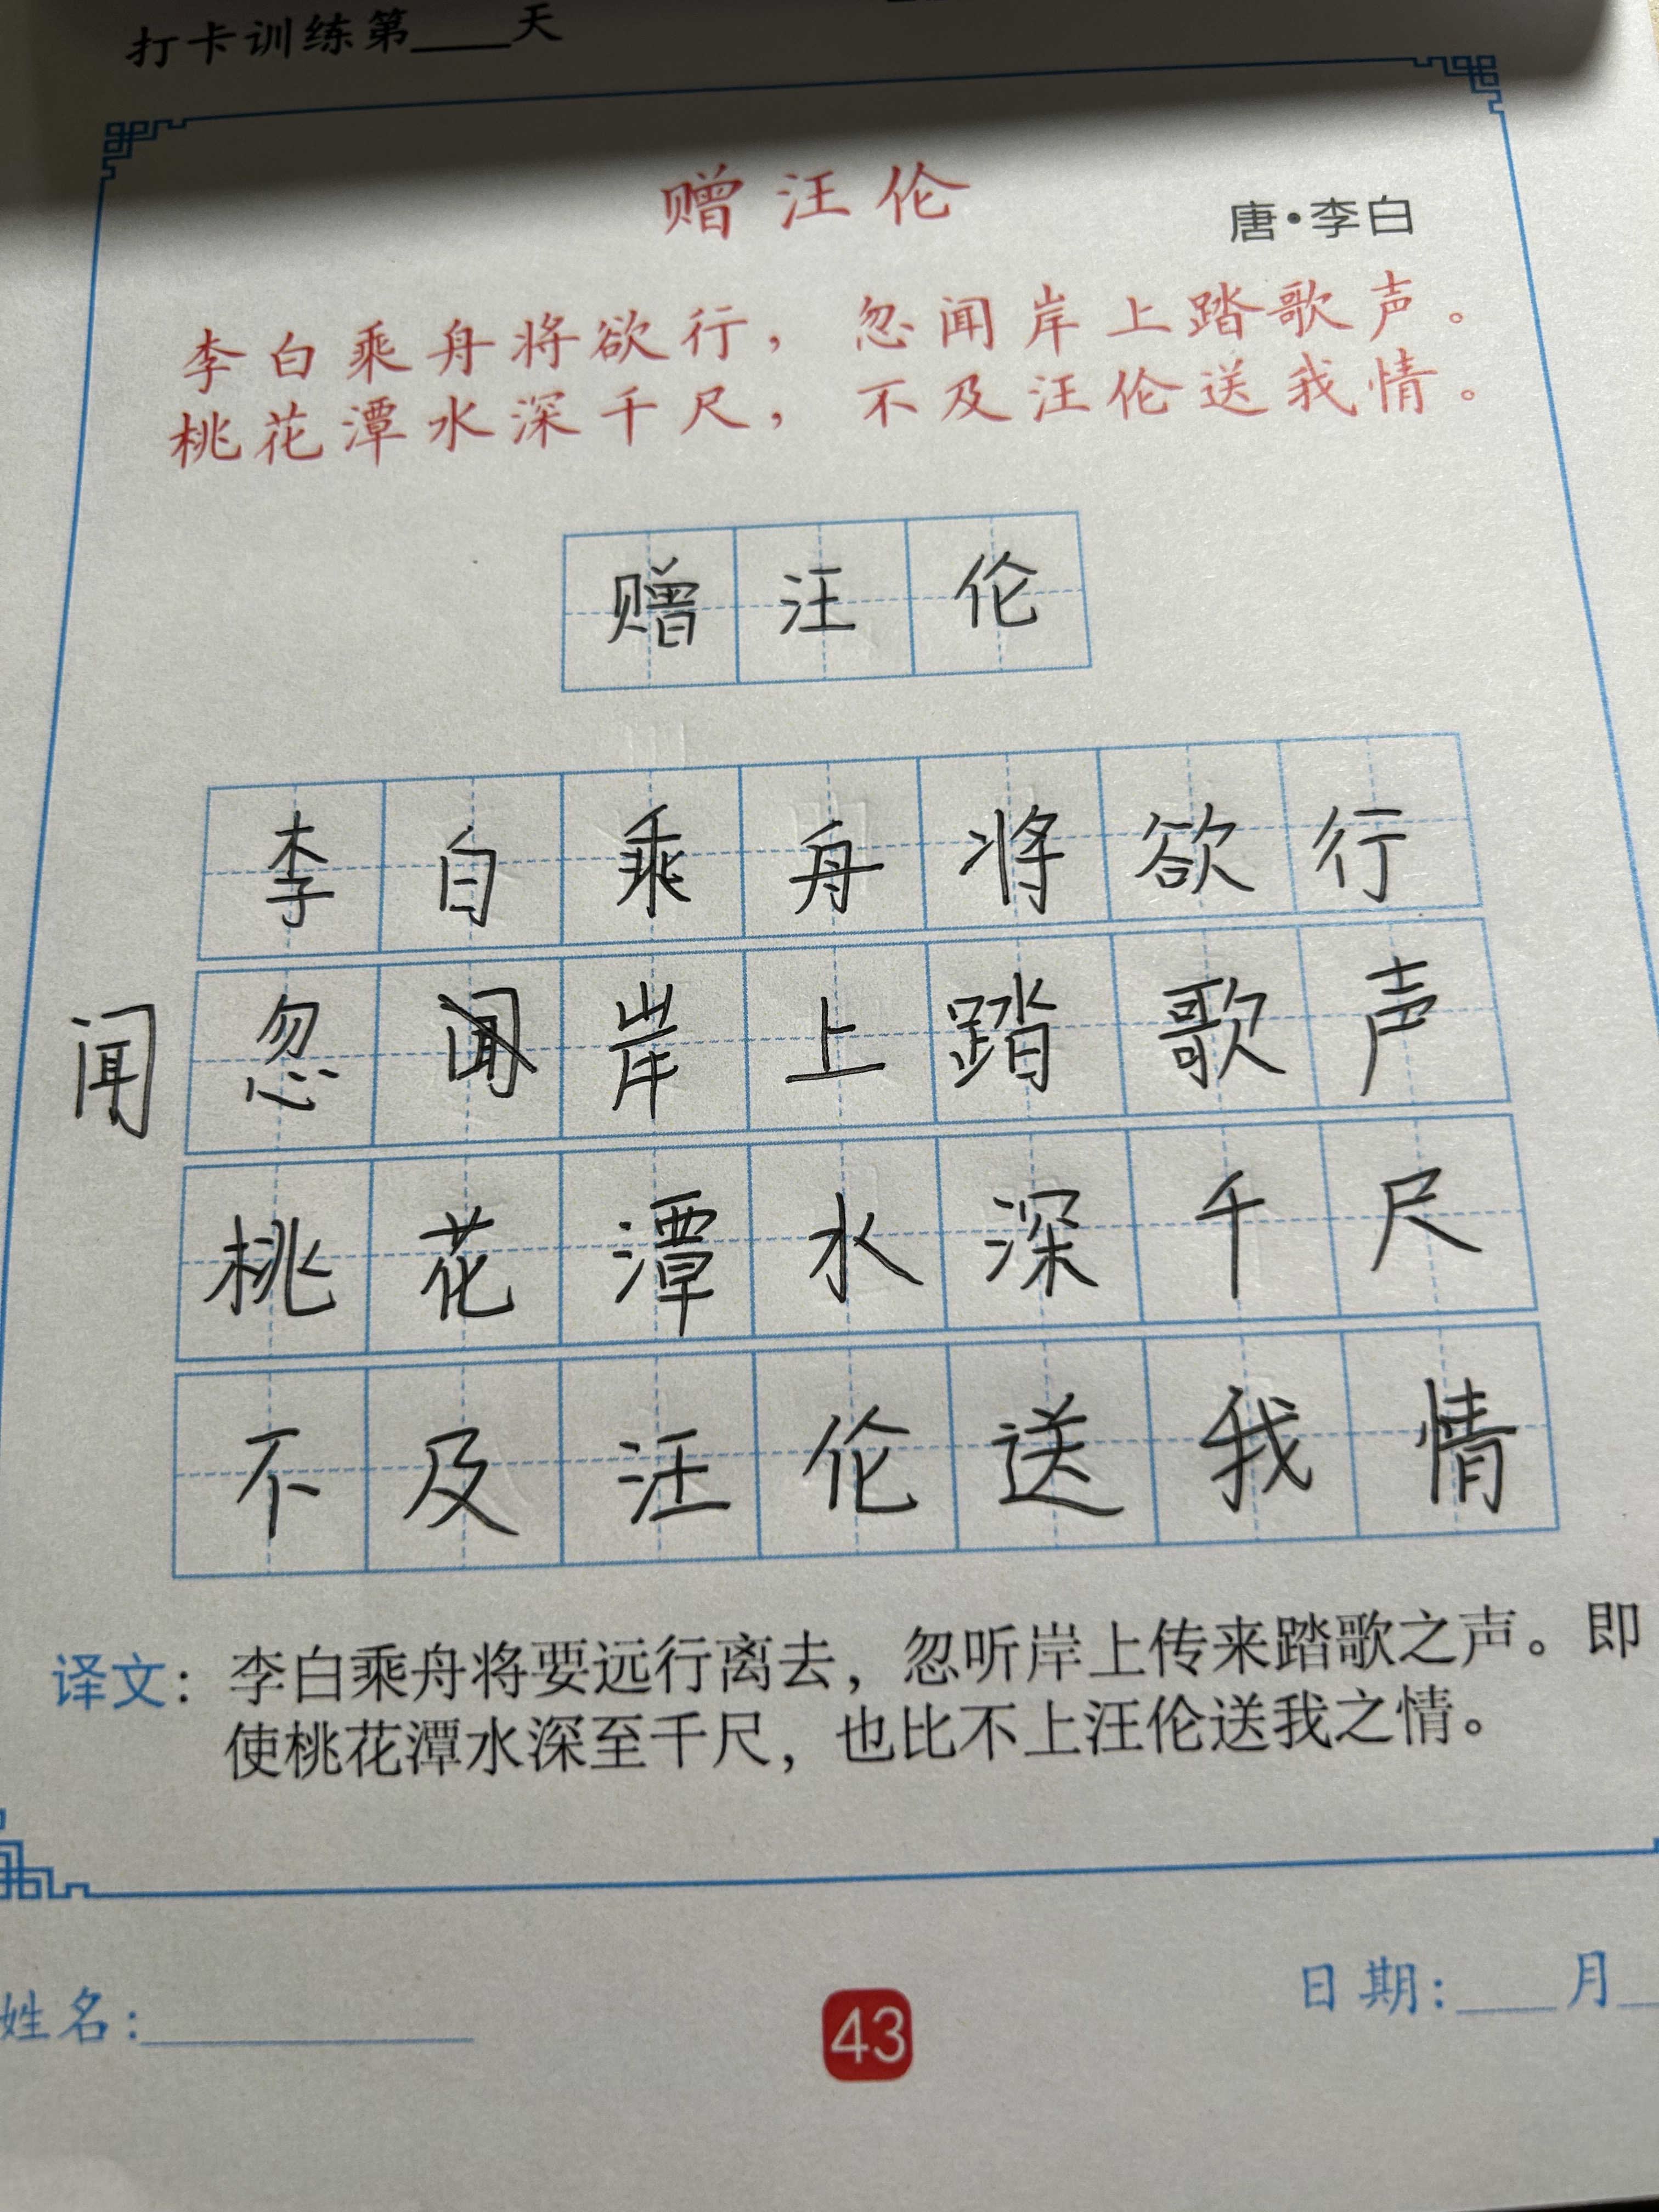 打卡训练第____天
赠汪伦
唐·李白
李白乘舟将欲行，忽闻岸上踏歌声。
桃花潭水深千尺，不及汪伦送我情。
赠汪伦
李白乘舟将欲行
闻
忽闻岸上踏歌声
桃花潭水深千尺
不及汪伦送我情
译文：李白乘舟将要远行离去，忽听岸上传来踏歌之声。即
使桃花潭水深至千尺，也比不上汪伦送我之情。
姓名：__________ 43 日期：____月__